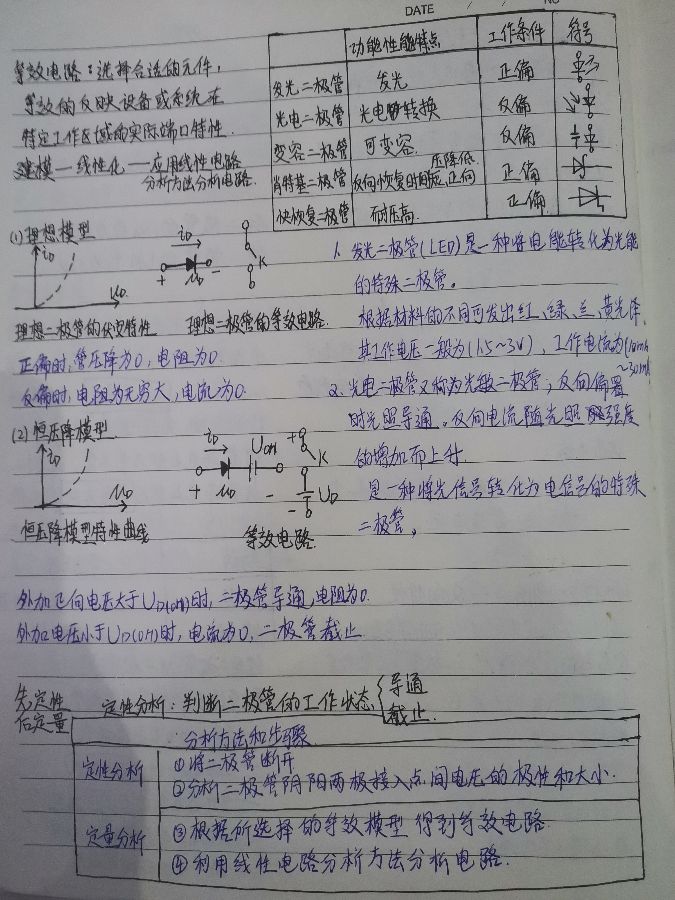 DATE / / NO
等效电路:选择合适的元件,
等效的反映设备或系统在
特定工作区域的实际端口特性.
建模—线性化—应用线性电路
分析方法分析电路.
功能性能特点 工作条件 符号
发光二极管 发光 正偏
光电二极管 光电转换 反偏
变容二极管 可变容. 反偏
肖特基二极管 反向恢复时间短,正向压降低 正偏
快恢复二极管 耐压高. 正偏
(1) 理想模型
iD uD iD + uD - K
理想二极管的伏安特性 理想二极管的等效电路.
正偏时,管压降为0,电阻为0.
反偏时,电阻为无穷大,电流为0.
(2) 恒压降模型
iD uD iD UON + uD - + K UD -
恒压降模型特性曲线 等效电路.
外加正向电压大于UD(on)时,二极管导通,电阻为0.
外加电压小于UD(on)时,电流为0,二极管截止.
1. 发光二极管(LED)是一种将电能转化为光能
的特殊二极管。
根据材料的不同可发出红、绿、兰、黄光泽,
其工作电压一般为(1.5~3V),工作电流为(10mA
~30mA
2. 光电二极管又称为光敏二极管,反向偏置
时光照导通。反向电流随光照强度
的增加而上升.
是一种将光信号转化为电信号的特殊
二极管,
先定性
后定量
定性分析:判断二极管的工作状态 { 导通
截止.
分析方法和步骤
定性分析 ①将二极管断开
②分析二极管阴阳两极接入点间电压的极性和大小.
定量分析 ③根据所选择的等效模型得到等效电路.
④利用线性电路分析方法分析电路.